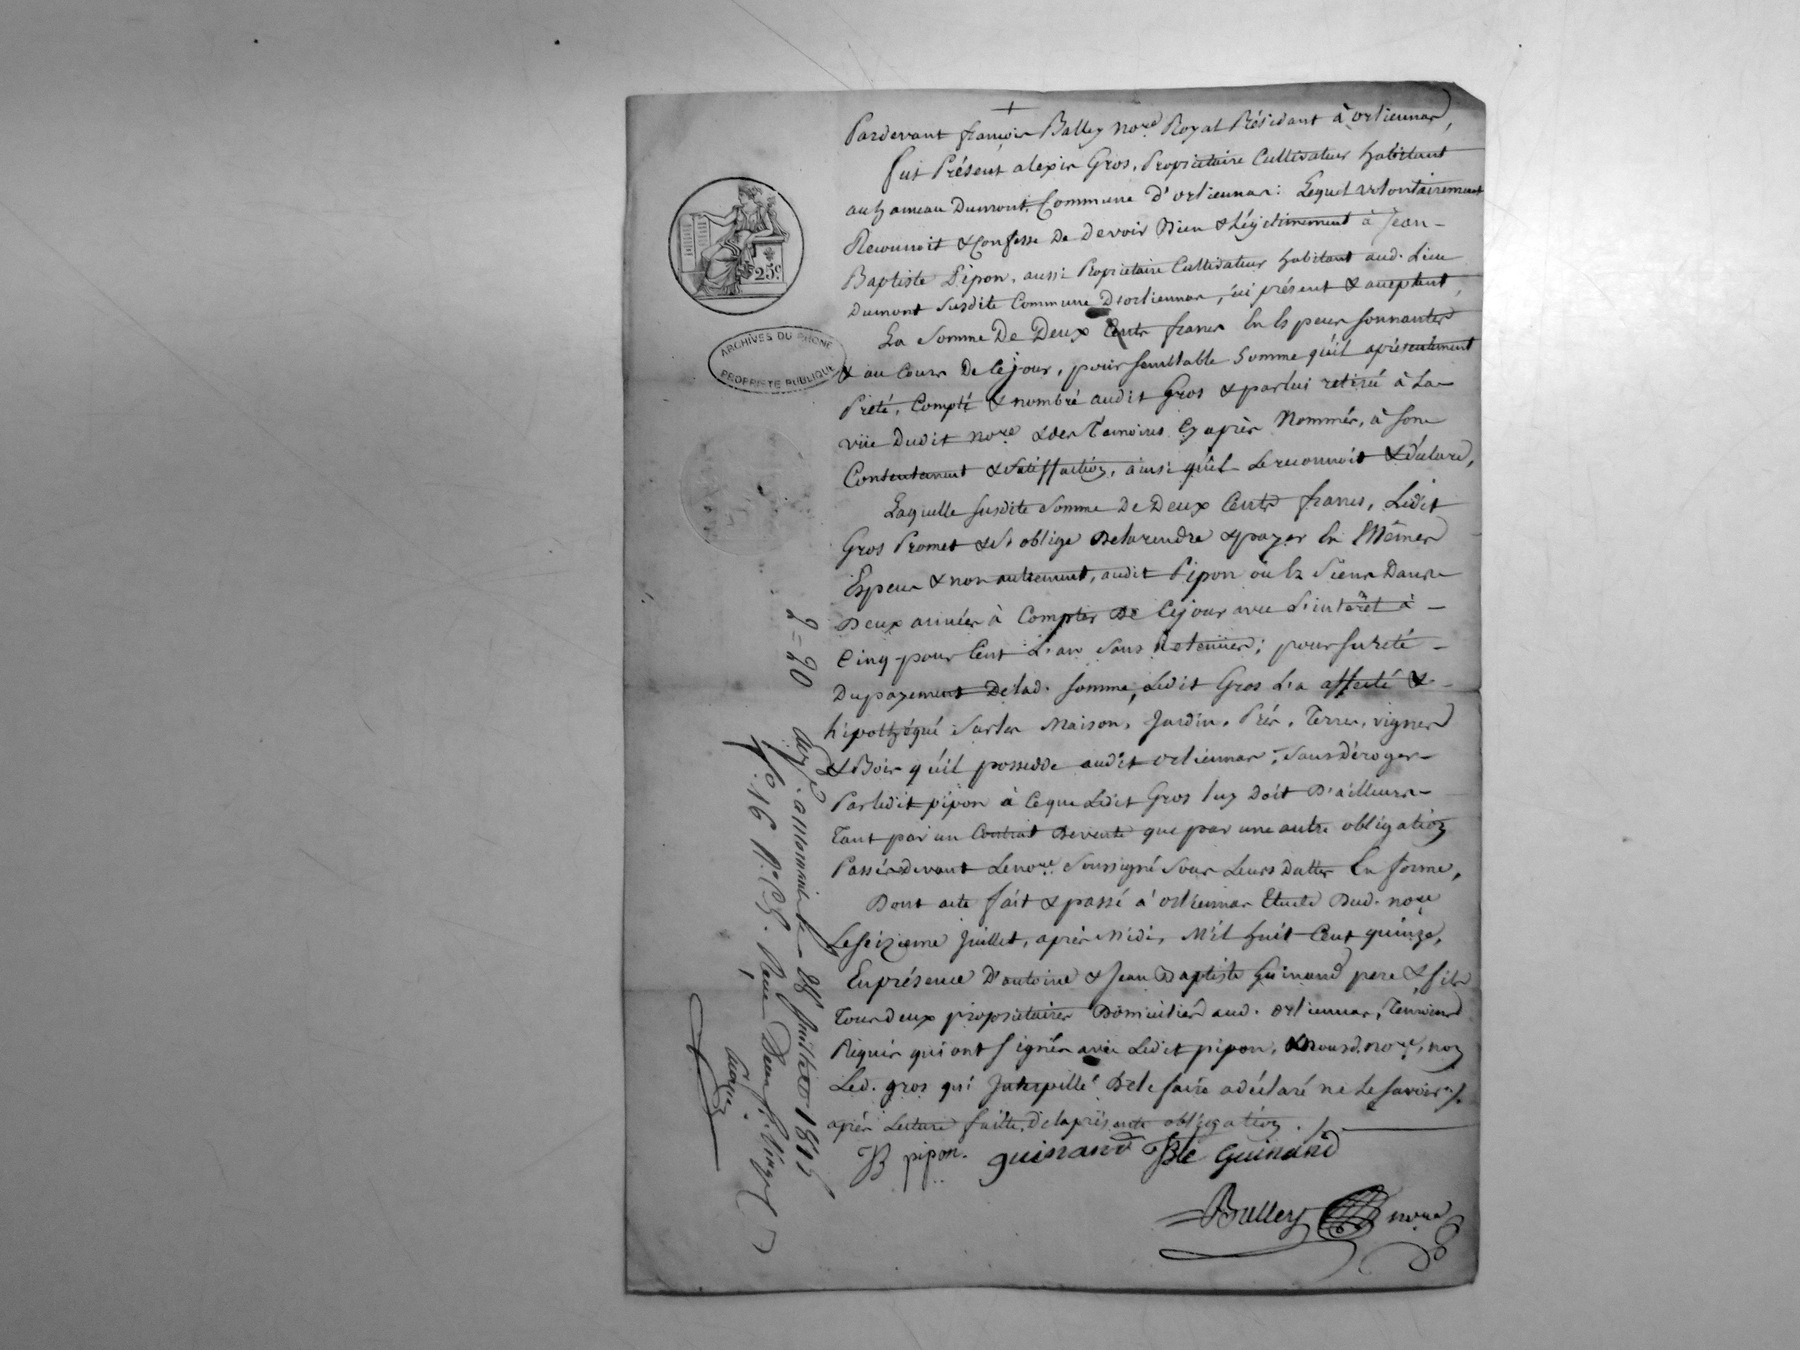 Pardevant françois Balley no.re Royal Résidant à orlienas,
fut Présent alexis Gros, Propriétaire Cultivateur habitant
au hameau Dumont, Commune d'orlienas: Lequel volontairement
Reconnoit & Confesse De devoir Bien & Légitimement à Jean-
Baptiste Pipon, aussi Propriétaire Cultivateur habitant aud. Lieu
dumont Susdite Commune D'orlienas, ici présent & acceptant,
La Somme De Deux Cents francs En Espèces sonnantes
& au Cours De Cejour, pour semblable Somme qu'il a présentement
Prêté, Compté & nombré audit Gros & par lui retiré à La
vüe Dudit no.re & des Témoins Cy après Nommés, à son
Contentement & Satisfaction, ainsi qu'il Le reconnoit & déclare,
Laquelle susdite Somme De Deux Cents francs, Ledit
Gros Promet & s'oblige De la rendre & payer En Mêmes
Espèces & non autrement, audit Pipon où Es Siens Dans
Deux années à Compter De Cejour avec L'intérêt à
Cinq pour Cent L'an Sans Retenües; pour sureté
Du payement De lad. somme, Ledit Gros L'a affecté &
hipothéqué Sur les Maison, Jardin, Prés, Terres, vignes
& Bois qu'il possedde audit orlienas, Sans Déroger
Par ledit pipon à Ceque Ledit Gros luy Doit D'ailleurs
Tant par un Contrat De vente que par une autre obligation
Passés devant Le no.re Soussigné Sous Leurs Dattes En forme,
Dont acte fait & passé à orlienas Etude Dud. no.re
Le Seizieme Juillet, après Midi, Mil huit Cent quinze,
En présence D'antoine & Jean Baptiste Guinand pere & fils
Tous deux propriétaires Domiciliés aud. orlienas, Temoins
Réquis qui ont signés avec Ledit pipon, & nousd. no.re, non
Led. gros qui Interpellé De le faire a déclaré ne Le Savoir
après Lecture faitte, De la présente obligation ./.
JB pipon. guinand JBte Guinand
Balley no.re
25c
ARCHIVES DU RHONE
PROPRIÉTÉ PUBLIQUE
2 = 20
Enr.é a mornant le 28 Juillet 1815
f.o 16 R.o C 5. Reçu Deux f. Vingt c